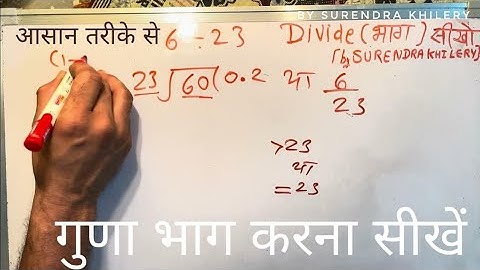 BY SURENDRA KHILERY
आसान तरीके से 6 ÷ 23 Divide (भाग) सीखो
[by SURENDRA KHILERY]
23 √60 (0.2 या 6/23
>23
या
=23
गुणा भाग करना सीखें